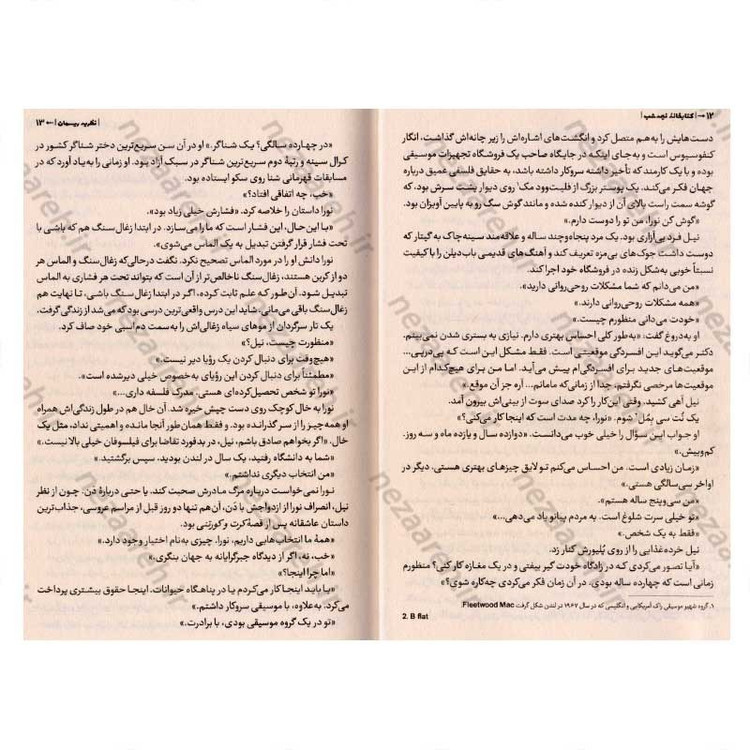 ۱۲ → | کتابخانهٔ نیمه‌شب |
دست‌هایش را به‌هم متصل کرد و انگشت‌های اشاره‌اش را زیر چانه‌اش گذاشت، انگار
کنفوسیوس است و به‌جای اینکه در جایگاه صاحب یک فروشگاه تجهیزات موسیقی
بوده و با یک کارمند که تأخیر داشته سروکار داشته باشد، به حقایق فلسفی عمیق درباره
جهان فکر می‌کند. یک پوستر بزرگ از فلیت‌وود مک۱ روی دیوار پشت سرش بود، که
گوشه سمت راست بالای آن از دیوار کنده شده و مانند گوش سگ رو به پایین آویزان بود.
«گوش کن نورا، من تو را دوست دارم.»
نیل فرد بی‌آزاری بود. یک مرد پنجاه‌وچند ساله و علاقه‌مند سینه‌چاک به گیتار که
دوست داشت جوک‌های بی‌مزه تعریف کند و آهنگ‌های قدیمی باب‌دیلن را با کیفیت
نسبتاً خوبی به‌شکل زنده در فروشگاه خود اجرا کند.
«من می‌دانم که شما مشکلات روحی‌روانی دارید.»
«همه مشکلات روحی‌روانی دارند.»
«خودت می‌دانی منظورم چیست.»
او به‌دروغ گفت: «به‌طور کلی احساس بهتری دارم. نیازی به بستری شدن نمی‌بینم.
دکتر می‌گوید این افسردگی موقعیتی است. فقط مشکل این است کـه پی‌درپی...
موقعیت‌های جدید برای افسردگی‌ام پیش می‌آید. امـا مـن برای هیچ‌کدام از این
موقعیت‌ها مرخصی نگرفتم، جدا از زمانی‌که مامانم... آره جز آن موقع.»
نیل آهی کشید. وقتی این‌کار را کرد صدای سوت از بینی‌اش بیرون آمد.
یک نُت سی بِمُل۲ شوم. «نورا، چه مدت است که اینجا کار می‌کنی؟»
او جواب این سؤال را خیلی خوب می‌دانست. «دوازده سال و یازده ماه و سه روز.
کم‌وبیش.»
«زمـان زیادی است. من احساس می‌کنم تو لایق چیزهای بهتری هستی، دیگر در
اواخر سی‌سالگی هستی.»
«من سی‌وپنج ساله هستم.»
«تو خیلی سرت شلوغ است. به مردم پیانو یاد می‌دهی...»
«فقط به یک شخص.»
نیل خرده‌غذایی را از روی پُلیورش کنار زد.
«آیا تصور می‌کردی کـه در زادگاه خودت گیر بیفتی و در یک مغازه کار کنی؟ منظورم
زمانی است که چهارده ساله بودی، در آن زمان فکر می‌کردی چه‌کاره شوی؟»
۱. گروه شهیر موسیقی راک آمریکایی و انگلیسی که در سال ۱۹۶۷ در لندن شکل گرفت Fleetwood Mac
2. B flat
| نظریه ریسمان | ← ۱۳
«در چهارده سالگی؟ یک شناگر.» او در آن سن سریع‌ترین دختر شناگر کشور در
کرال سینه و رتبهٔ دوم سریع‌ترین شناگر در سبک آزاد بود. او زمانی را به‌یاد آورد که در
مسابقات قهرمانی شنا روی سکو ایستاده بود.
«خب، چه اتفاقی افتاد؟»
نورا داستان را خلاصه کرد. «فشارش خیلی زیاد بود.»
«با این‌حال، این فشار است که ما را می‌سازد. در ابتدا زغال‌سنگ هم که باشی با
تحت فشار قرار گرفتن تبدیل به یک الماس می‌شوی.»
نورا دانش او را در مورد الماس تصحیح نکرد. نگفت درحالی‌که زغال‌سنگ و الماس هر
دو از کربن هستند، زغال‌سنگ ناخالص‌تر از آن است که بتواند تحت هر فشاری به الماس
تبدیل شـود. آن‌طور کـه علم ثابت کـرده، اگـر در ابتدا زغال‌سنگ باشی، تـا نهایت هم
زغال‌سنگ باقی می‌مانی. شاید این درس واقعی‌ترین درسی بود که می‌شد از زندگی گرفت.
یک تار سرگردان از موهای سیاه زغالی‌اش را به‌سمت دم اسبی خود صاف کرد.
«منظورت چیست، نیل؟»
«هیچ‌وقت برای دنبال کردن یک رؤیا دیر نیست.»
«مطمئناً برای دنبال کردن این رؤیای به‌خصوص خیلی دیرشده است.»
«نورا تو شخص تحصیل‌کرده‌ای هستی. مدرک فلسفه داری...»
نورا به خال کوچک روی دست چپش خیره شد. آن خال هم در طول زندگی‌اش همراه
او همه‌چیز را از سر گذرانده بود. و فقط همان‌طور آنجا مانده و اهمیتی نداد، مثل یک
خال. «اگر بخواهم صادق باشم، نیل، در بدفورد تقاضا برای فیلسوفان خیلی بالا نیست.»
«شما به دانشگاه رفتید، یک سال در لندن بودید، سپس برگشتید.»
«من انتخاب دیگری نداشتم.»
نورا نمی‌خواست درباره مرگ مـادرش صحبت کند. یا حتـی درباره دَن. چون از نظر
نیل، انصراف نورا از ازدواجش با دَن، آن‌هم تنها دو روز قبل از مراسم عروسی، جذاب‌ترین
داستان عاشقانه پس از قصهٔ کرت و کورتنی بود.
«همهٔ ما انتخاب‌هایی داریم، نورا. چیزی به‌نام اختیار وجود دارد.»
«خب، نه، اگر از دیدگاه جبرگرایانه به جهان بنگری.»
«اما چرا اینجا؟»
«یـا باید اینجا کار می‌کردم یـا در پناهگاه حیوانات. اینجا حقوق بیشتری پرداخت
می‌کرد. به‌علاوه، با موسیقی سروکار داشتم.»
«تو در یک گروه موسیقی بودی، با برادرت.»
nezaareh.ir